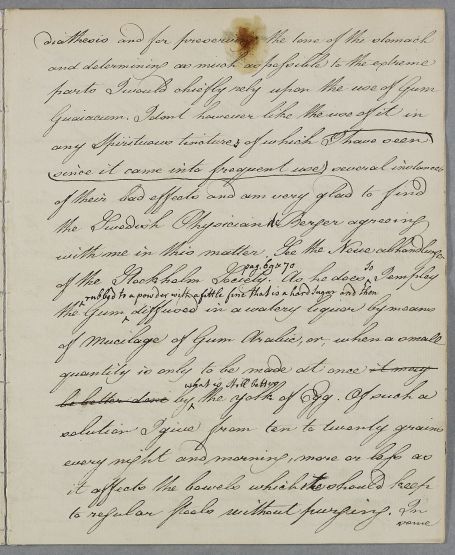 diathesis and for preserving the tone of the stomach
and determining as much as possible to the extreme
parts I would chiefly rely upon the use of Gum
Guaiacum. I dont however like the use of it in
any Spirituous tinctures of which I have seen
(since it came into frequent use) several instances
of their bad effects and am very glad to find
the Swedish Physician Berger agreeing
with me in this matter. See the Neue abhandlungen
of the Stockholm Society. pag. 69 & 70 As he does so I employ
rubbed to a powder with a little fine that is a hard Sugar and then
the Gum diffused in a watery liquor by means
of Mucilage of Gum Arabic, or, when a small
quantity is only to be made at once it may
what is still better
be better done by the Yolk of Egg. Of such a
solution I give from ten to twenty grains
every night and morning, more or less as
it affects the bowels which it should keep
to regular stools without purging. In
some